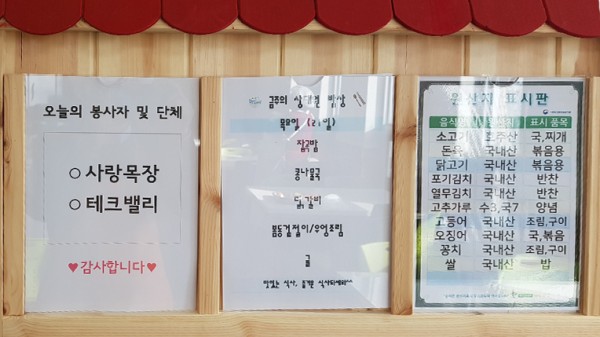 오늘의 봉사자 및 단체
○ 사랑목장
○ 테크밸리
♥감사합니다♥
금주의 상대원 밥상
목요일 (21일)
잡곡밥
콩나물국
닭갈비
봄동겉절이/우엉조림
귤
맛있는 식사, 즐거운 식사되세요^^
원산지 표시판
음식명 원산지 표시 품목
소고기 호주산 국,찌개
돈육 국내산 볶음용
닭고기 국내산 볶음용
포기김치 국내산 반찬
열무김치 국내산 반찬
고추가루 수3, 국7 양념
고등어 국내산 조림,구이
오징어 국내산 국,볶음
꽁치 국내산 조림,구이
쌀 국내산 밥